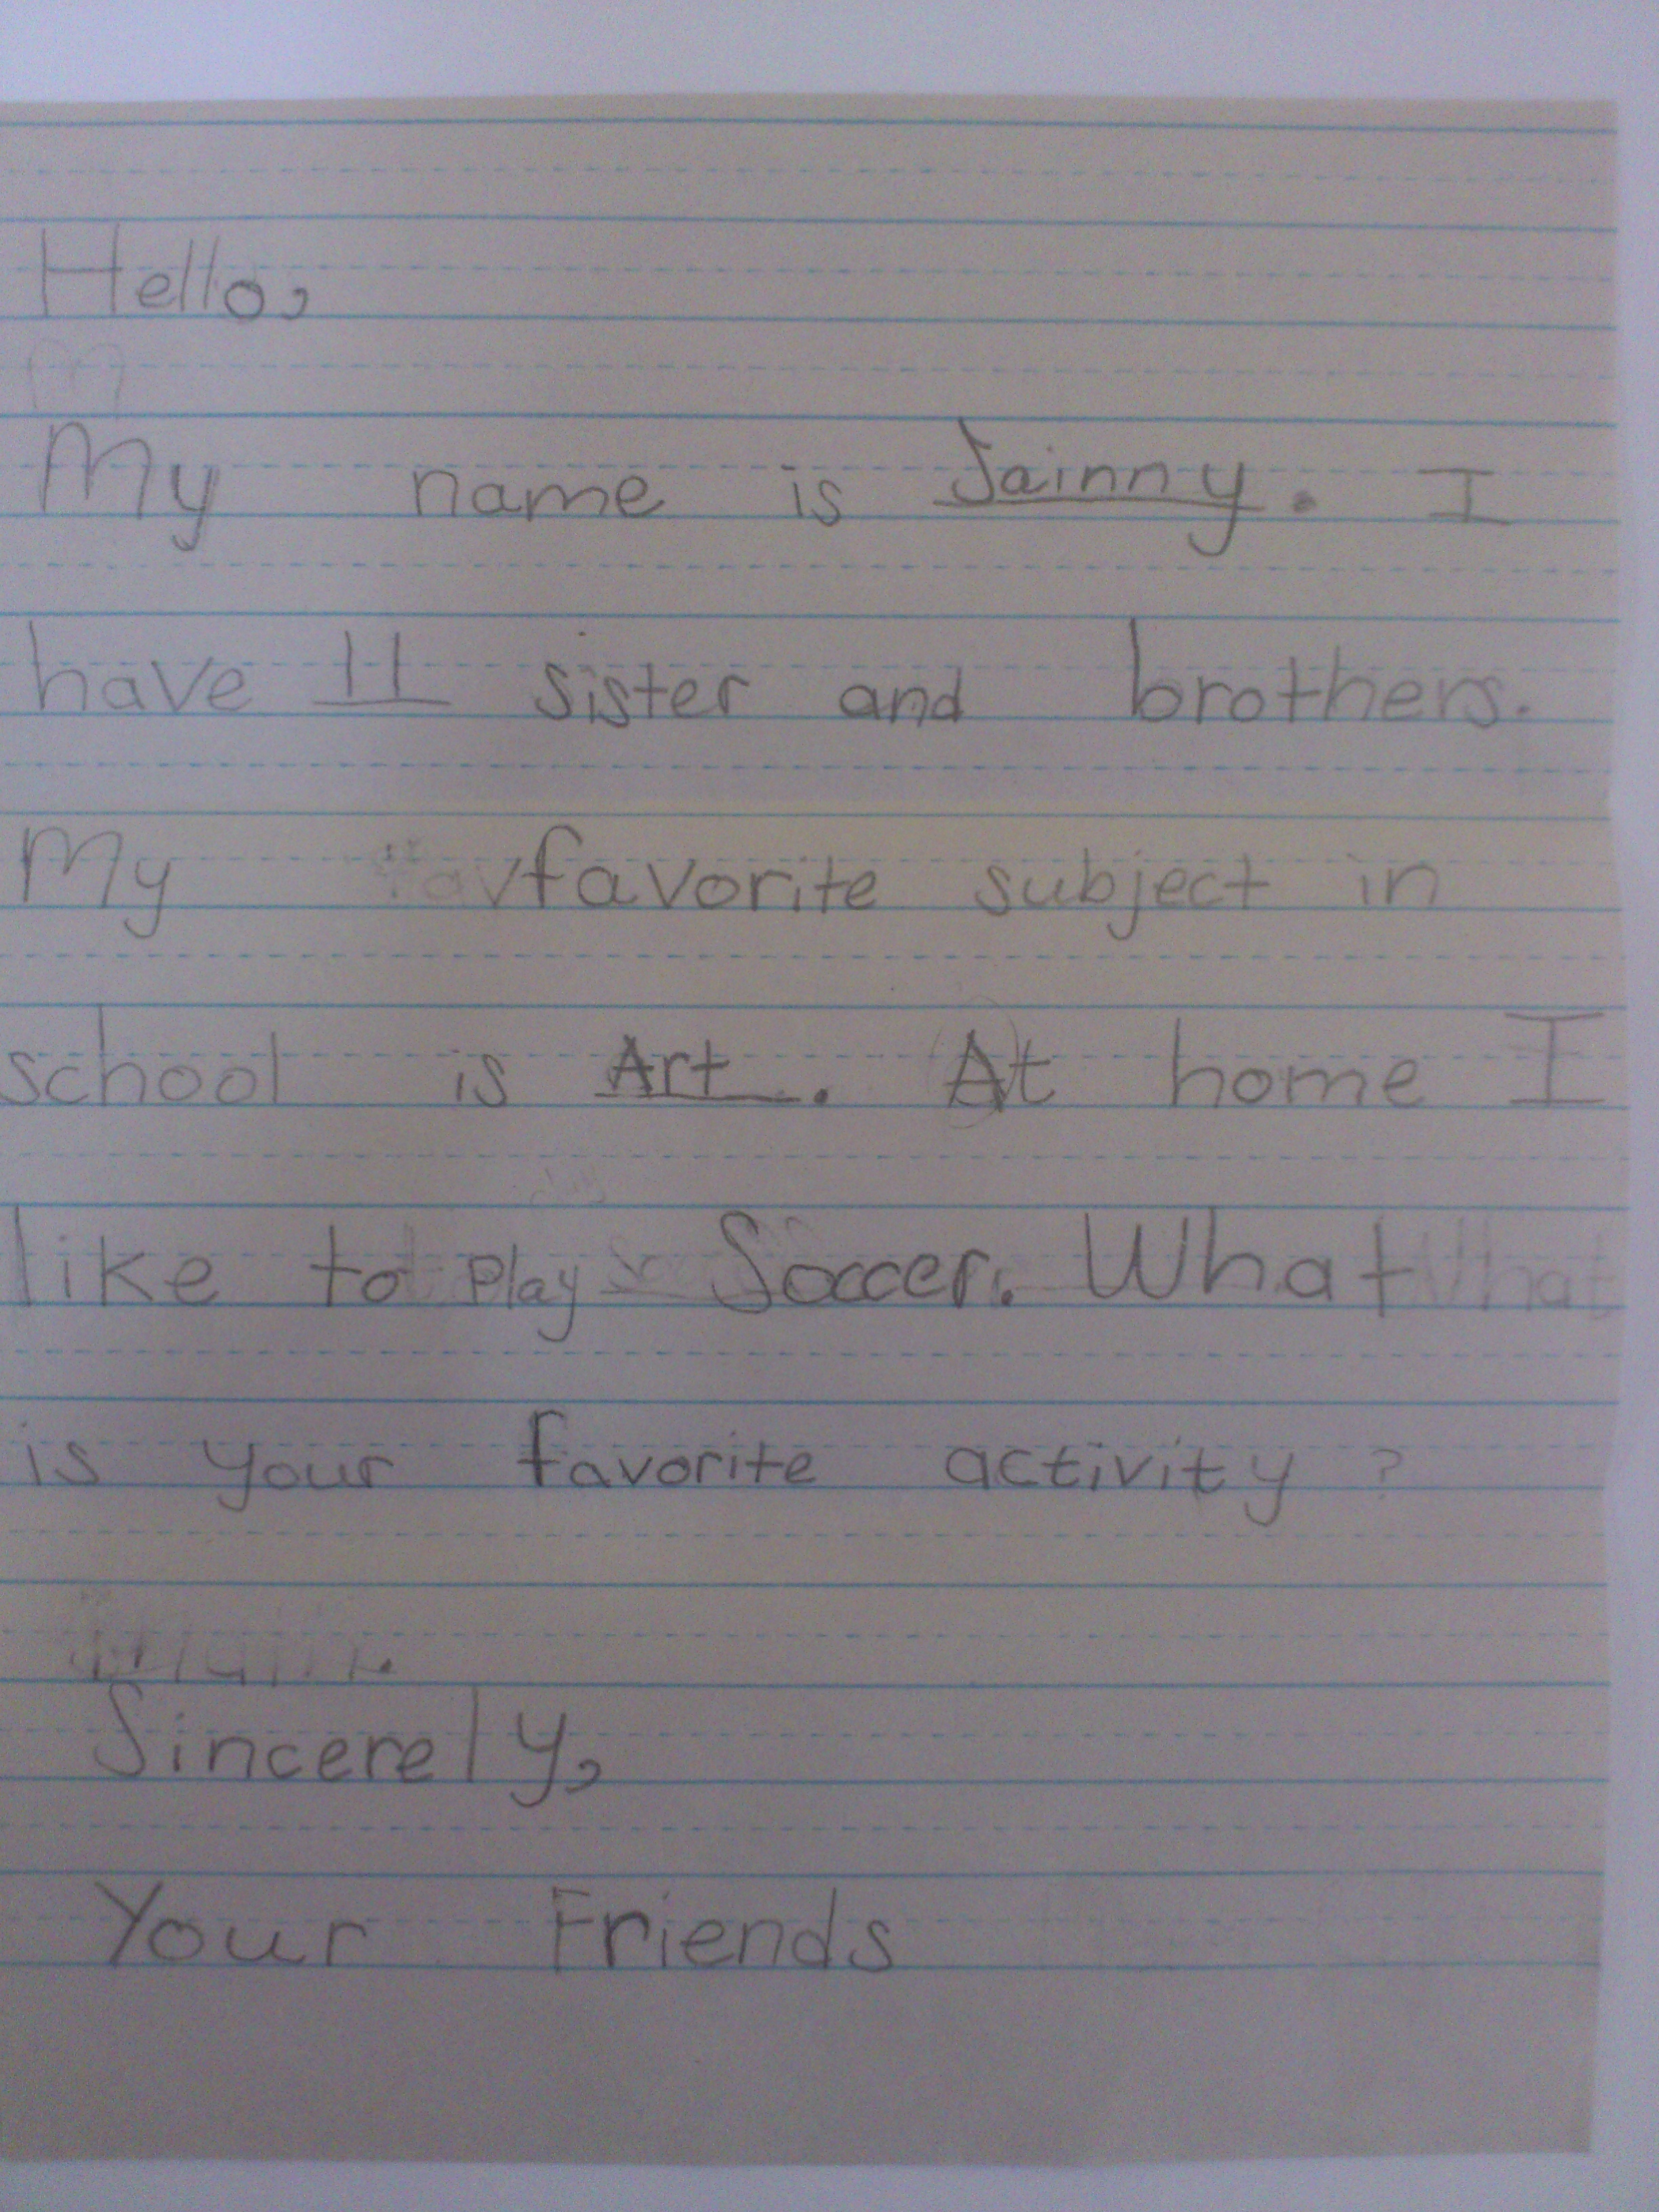 Hello,
My name is Jainny. I
have 11 sister and brothers.
My favorite subject in
school is Art. At home I
like to play Soccer. What
is your favorite activity?
Sincerely,
Your Friends